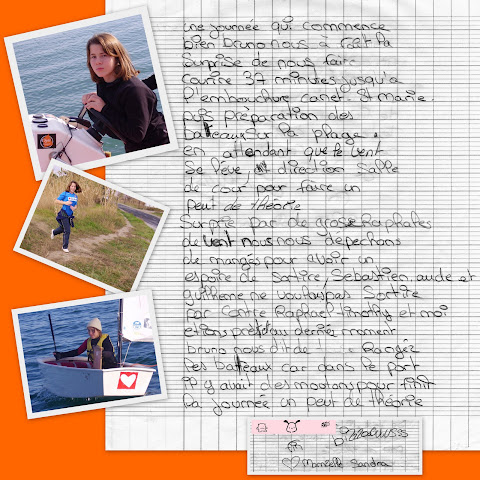 une journée qui commence
bien bruno nous à fait la
surprise de nous faire
courire 37 minutes jusqu'a
l'embouchure canet-St marie.
puis préparation des
bateaux sur la plage,
en attendant que le vent
se lève, direction Salle
de cour pour faire un
peut de théorie
Surpris par de grosse Raphales
de vent nous nous dépechons
de mangés pour avoir un
espoire de Sortire, Sebastien, aude et
guilheme ne voulous pas Sortire
par contre Raphael-timothy et moi
etions prêt au dernié moment
bruno nous dit de ! ... Rangéz
les bateaux car dans le port
il y avait des moutons pour finir
la journée un peut de théorie
Sandra